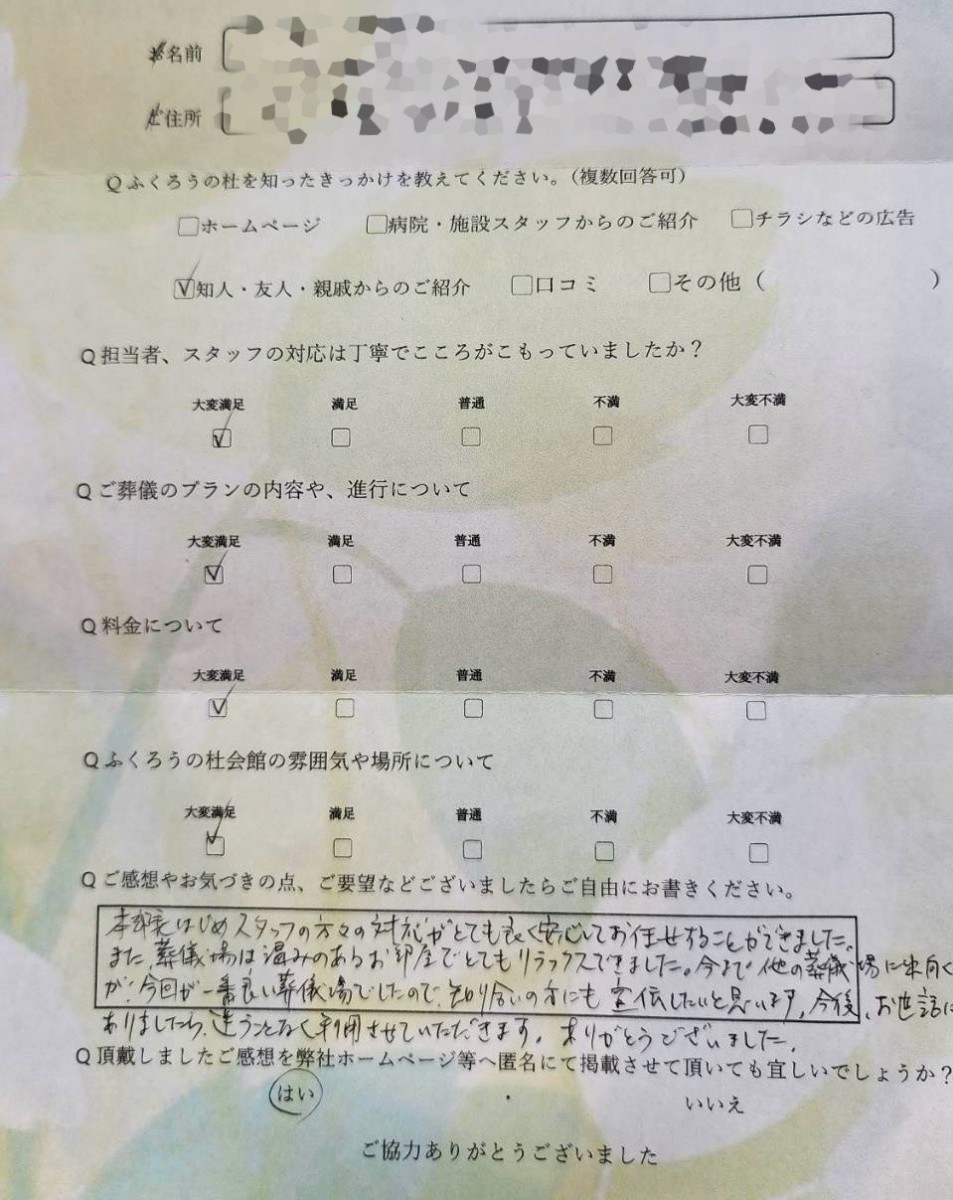 お名前
ご住所
Q ふくろうの杜を知ったきっかけを教えてください。(複数回答可)
ホームページ 病院・施設スタッフからのご紹介 チラシなどの広告
知人・友人・親戚からのご紹介 口コミ その他( )
Q 担当者、スタッフの対応は丁寧でこころがこもっていましたか?
大変満足 満足 普通 不満 大変不満
Q ご葬儀のプランの内容や、進行について
大変満足 満足 普通 不満 大変不満
Q 料金について
大変満足 満足 普通 不満 大変不満
Q ふくろうの杜会館の雰囲気や場所について
大変満足 満足 普通 不満 大変不満
Q ご感想やお気づきの点、ご要望などございましたらご自由にお書きください。
はじめスタッフの方々の対応がとても良く安心してお任せすることができました。
また、葬儀場は温みのあるお部屋でとてもリラックスできました。今まで他の葬儀場に出向く
が、今回が一番良い葬儀場でしたので、知り合いの方にも宣伝したいと思います。今後、お世話に
ありましたら、迷うことなく利用させていただきます。ありがとうございました。
Q 頂戴しましたご感想を弊社ホームページ等へ匿名にて掲載させて頂いても宜しいでしょうか?
はい いいえ
ご協力ありがとうございました